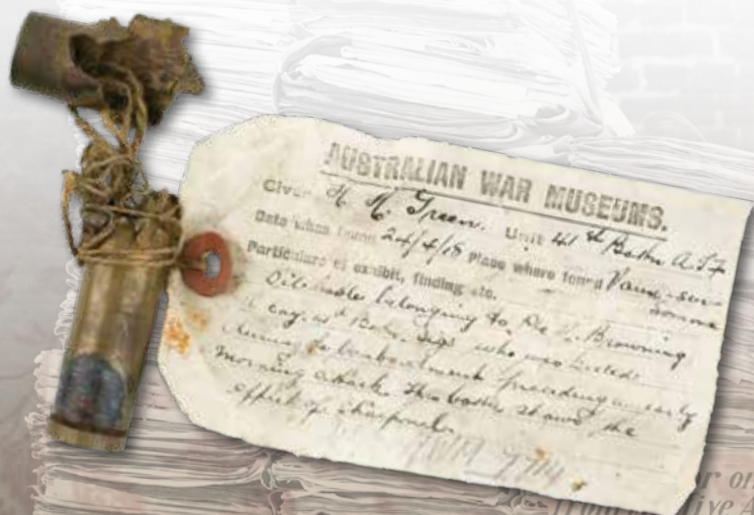 AUSTRALIAN WAR MUSEUMS.
Giver H. H. Green. Unit 41st Battn A.I.F
Date when found 24/4/18 Place where found Vaux-sur-
somme
Particulars of exhibit, finding etc.
belonging to Pte Browning
who was killed
during bombardment preceding an early
morning attack. This shows the
effect of shrapnel.